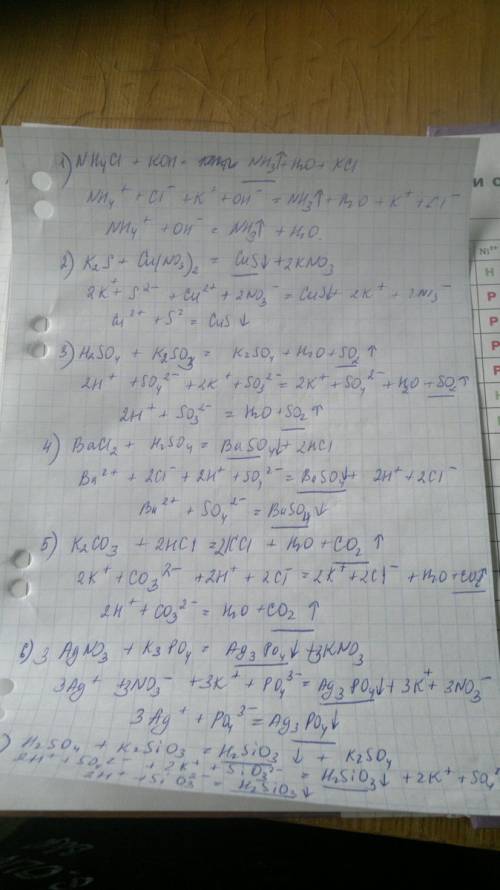 1) NH4Cl + KOH = NH3↑ + H2O + KCl
NH4⁺ + Cl⁻ + K⁺ + OH⁻ = NH3↑ + H2O + K⁺ + Cl⁻
NH4⁺ + OH⁻ = NH3↑ + H2O.
2) K2S + Cu(NO3)2 = CuS↓ + 2KNO3
2K⁺ + S²⁻ + Cu²⁺ + 2NO3⁻ = CuS↓ + 2K⁺ + 2NO3⁻
Cu²⁺ + S² = CuS↓
3) H2SO4 + K2SO3 = K2SO4 + H2O + SO2↑
2H⁺ + SO4²⁻ + 2K⁺ + SO3²⁻ = 2K⁺ + SO4²⁻ + H2O + SO2↑
2H⁺ + SO3²⁻ = H2O + SO2↑
4) BaCl2 + H2SO4 = BaSO4↓ + 2HCl
Ba²⁺ + 2Cl⁻ + 2H⁺ + SO4²⁻ = BaSO4↓ + 2H⁺ + 2Cl⁻
Ba²⁺ + SO4²⁻ = BaSO4↓
5) K2CO3 + 2HCl = 2KCl + H2O + CO2↑
2K⁺ + CO3²⁻ + 2H⁺ + 2Cl⁻ = 2K⁺ + 2Cl⁻ + H2O + CO2↑
2H⁺ + CO3²⁻ = H2O + CO2↑
6) 3AgNO3 + K3PO4 = Ag3PO4↓ + 3KNO3
3Ag⁺ + 3NO3⁻ + 3K⁺ + PO4³⁻ = Ag3PO4↓ + 3K⁺ + 3NO3⁻
3Ag⁺ + PO4³⁻ = Ag3PO4↓
) H2SO4 + K2SiO3 = H2SiO3↓ + K2SO4
2H⁺ + SO4²⁻ + 2K⁺ + SiO3²⁻ = H2SiO3↓ + 2K⁺ + SO4²
2H⁺ + SiO3²⁻ = H2SiO3↓
и с
Ni²⁺
Н
Р
Р
Р
Р
Н